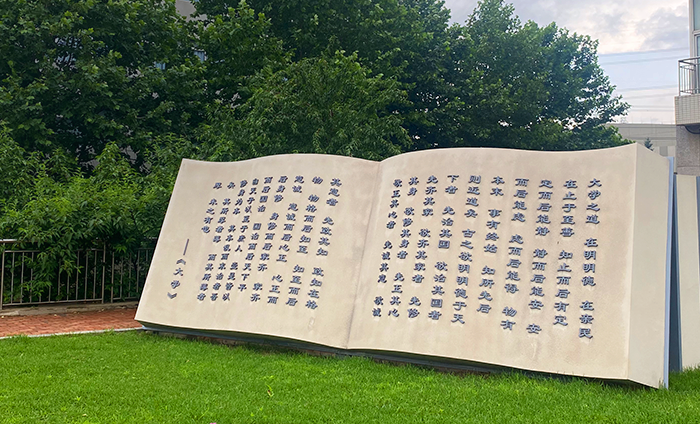 大学之道 在明明德 在亲民
在止于至善 知止而后有定
定而后能静 静而后能安 安
而后能虑 虑而后能得 物有
本末 事有终始 知所先后
则近道矣 古之欲明明德于天
下者 先治其国 欲治其国者
先齐其家 欲齐其家者 先修
其身 欲修其身者 先正其心
欲正其心者 先诚其意 欲诚
其意者 先致其知 致知在格
物 物格而后知至 知至而后
意诚 意诚而后心正 心正而
后身修 身修而后家齐 家齐
而后国治 国治而后天下平
自天子以至于庶人 壹是皆以
修身为本 其本乱而末治者否
矣 其所厚者薄 而其所薄者
厚 未之有也
——《大学》